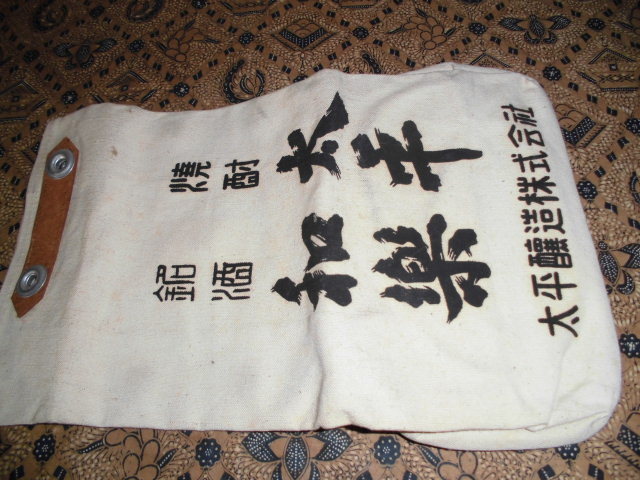 燒酎太平
銘酒和樂
太平醸造株式会社